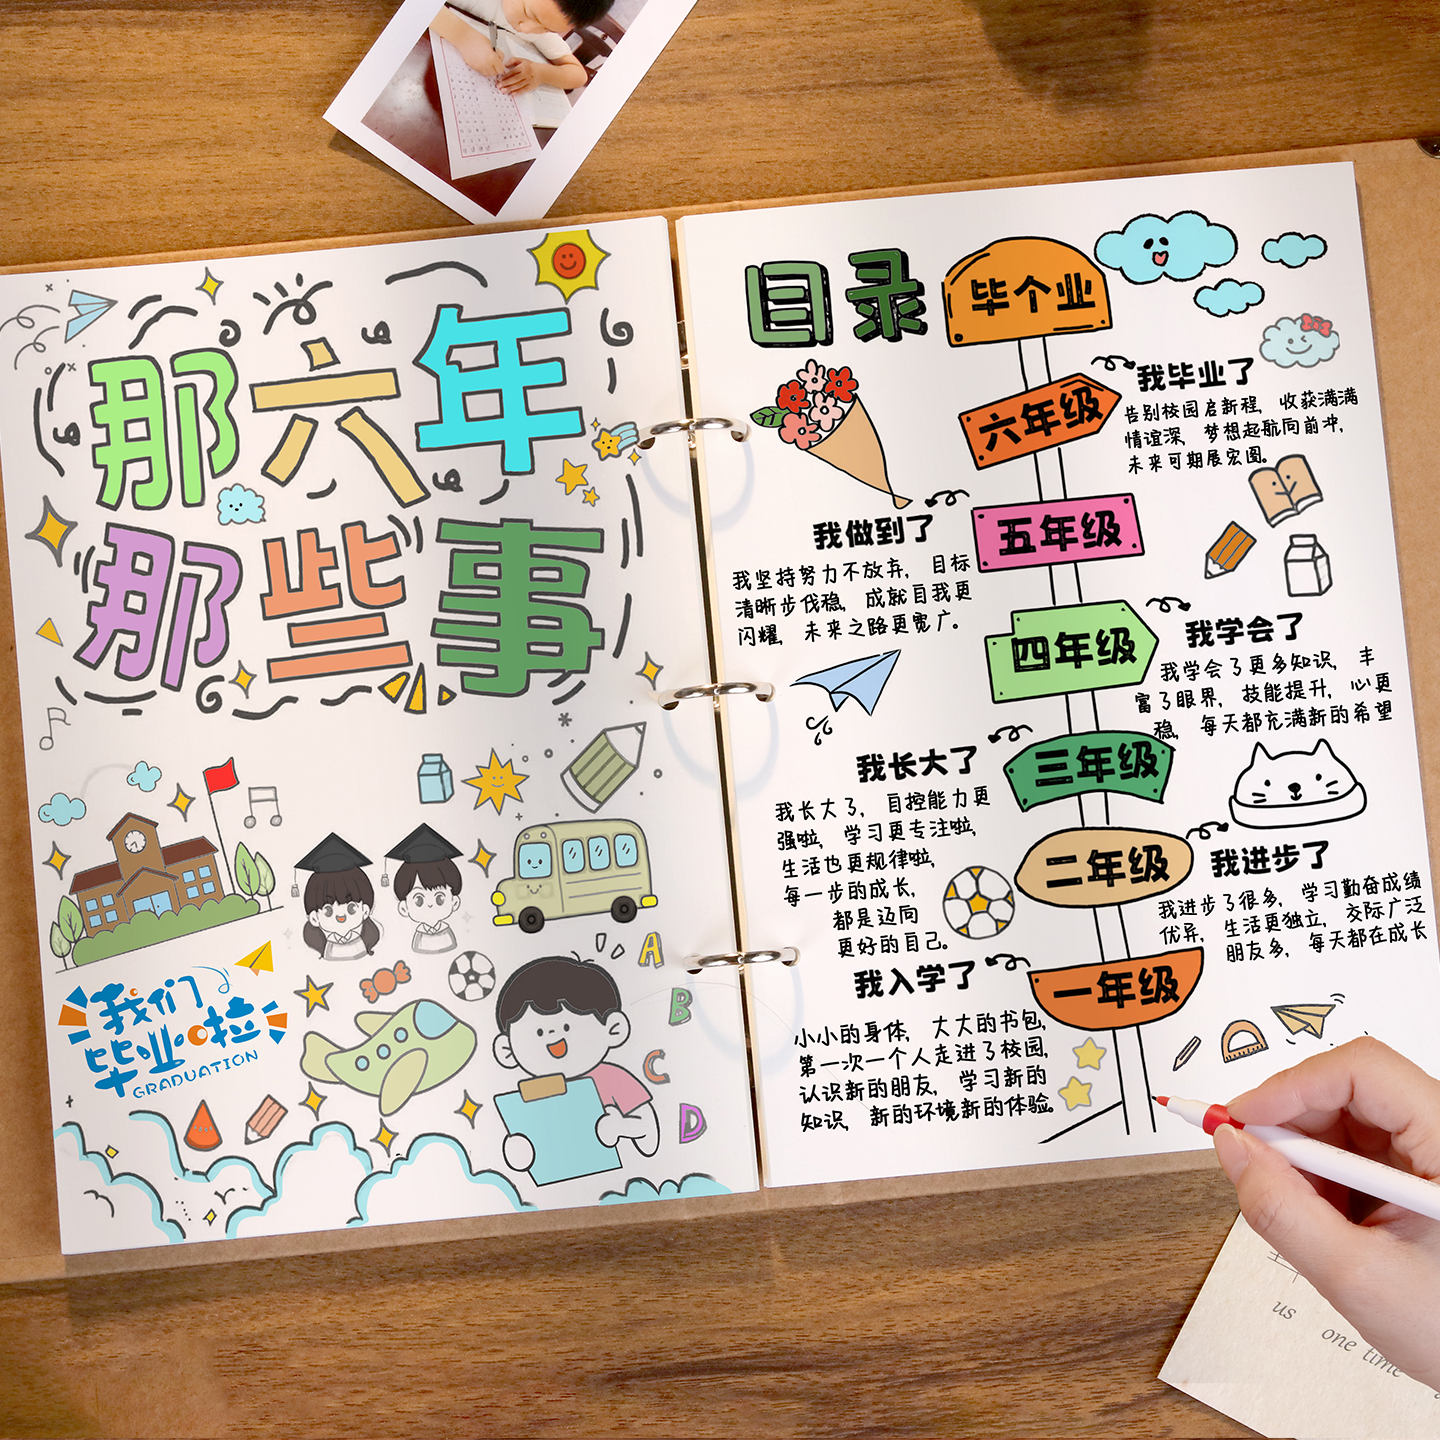 那六年
那些事
我们
毕业啦
GRADUATION
A
B
C
D
目录
毕个业
六年级
我毕业了
告别校园启新程，收获满满
情谊深，梦想起航向前冲，
未来可期展宏图。
五年级
我做到了
我坚持努力不放弃，目标
清晰步伐稳，成就自我更
闪耀，未来之路更宽广。
四年级
我学会了
我学会了更多知识，丰
富了眼界，技能提升，心更
稳，每天都充满新的希望
三年级
我长大了
我长大了，自控能力更
强啦，学习更专注啦，
生活也更规律啦，
每一步的成长，
都是迈向
更好的自己。
二年级
我进步了
我进步了很多，学习勤奋成绩
优异，生活更独立，交际广泛
朋友多，每天都在成长
一年级
我入学了
小小的身体，大大的书包，
第一次一个人走进了校园，
认识新的朋友，学习新的
知识，新的环境新的体验。
us one time